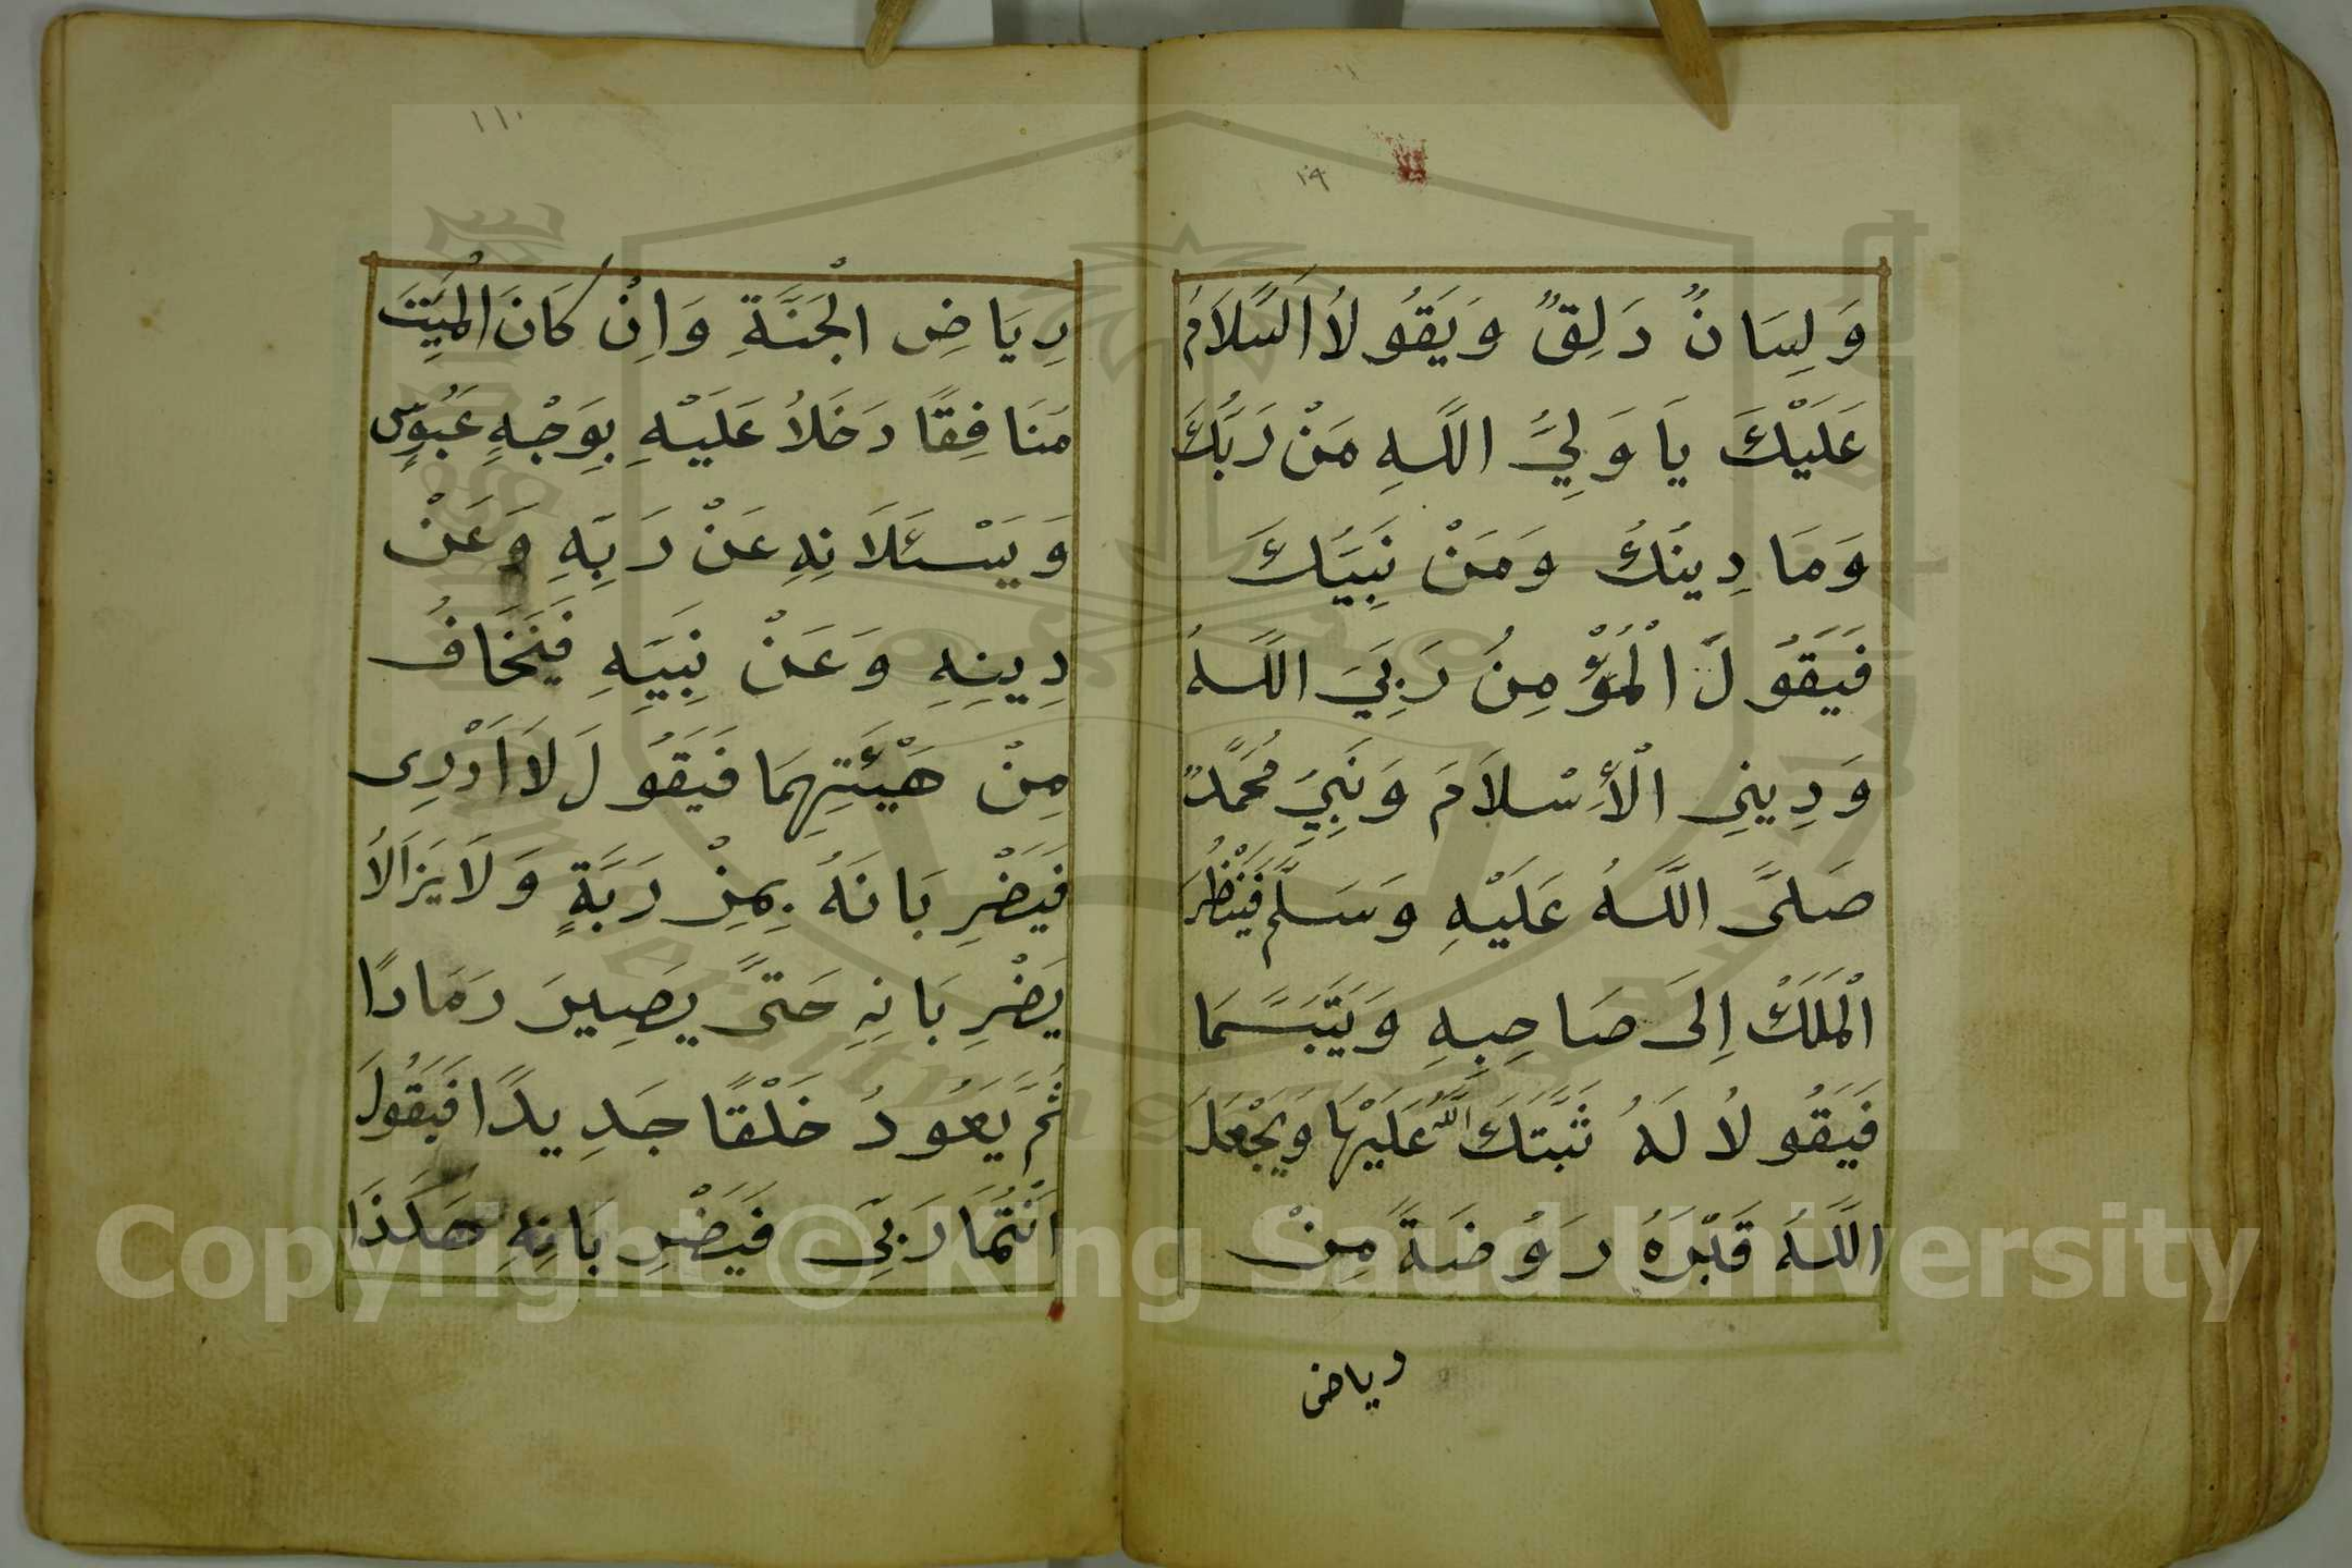 ١٩
وَلِسَانٌ دَلِقٌ وَيَقُولاُ اَلسَّلاَمُ
عَلَيْكَ يَا وَلِيَّ اللَّهِ مَنْ رَبُّكَ
وَمَا دِينُكَ وَمَنْ نَبِيُّكَ
فَيَقُولَ الْمُؤْمِنُ رَبِّيَ اللَّهُ
وَدِينِى الْأِسْلاَمَ وَنَبِيِّ مُحَمَّدٌ
صَلَّى اللَّهُ عَلَيْهِ وَسَلَّمَ فَيَنْظُرُ
الْمَلَكُ اِلَى صَاحِبِهِ وَيَتَبَسَّمَا
فَيَقُولاُ لَهُ ثَبَّتَكَ اللَّهُ عَلَيْهَا وَيَجْعَلَ
اللَّهُ قَبْرَهُ رَوُضَةً مِنْ
رياض
١١٠
رِيَاضِ الْجَنَّةِ وَاِنْ كَانَ الْمَيِّتَ
مُنَافِقًا دَخَلاُ عَلَيْهِ بِوَجْهٍ عَبُوسٍ
وَيَسْئَلاَنِهِ عَنْ رَبِّهِ وَعَنْ
دِينِهِ وَعَنْ نَبِيِّهِ فَيَخَافُ
مِنْ هَيْئَتِهِمَا فَيَقُولَ لاَ اَدْرِى
فَيَضْرِبَانَهُ بِمِزْرَبَّةٍ وَلاَ يَزَالاُ
يَضْرِبَانِهِ حَتَّى يَصِيرَ رَمَادًا
ثُمَّ يَعُودُ خَلْقًا جَدِيدًا فَيَقُولَ
اَنْتُمَا رَبِّيَ فَيَضْرِبَانِهِ هَكَذَا
Copyright © King Saud University